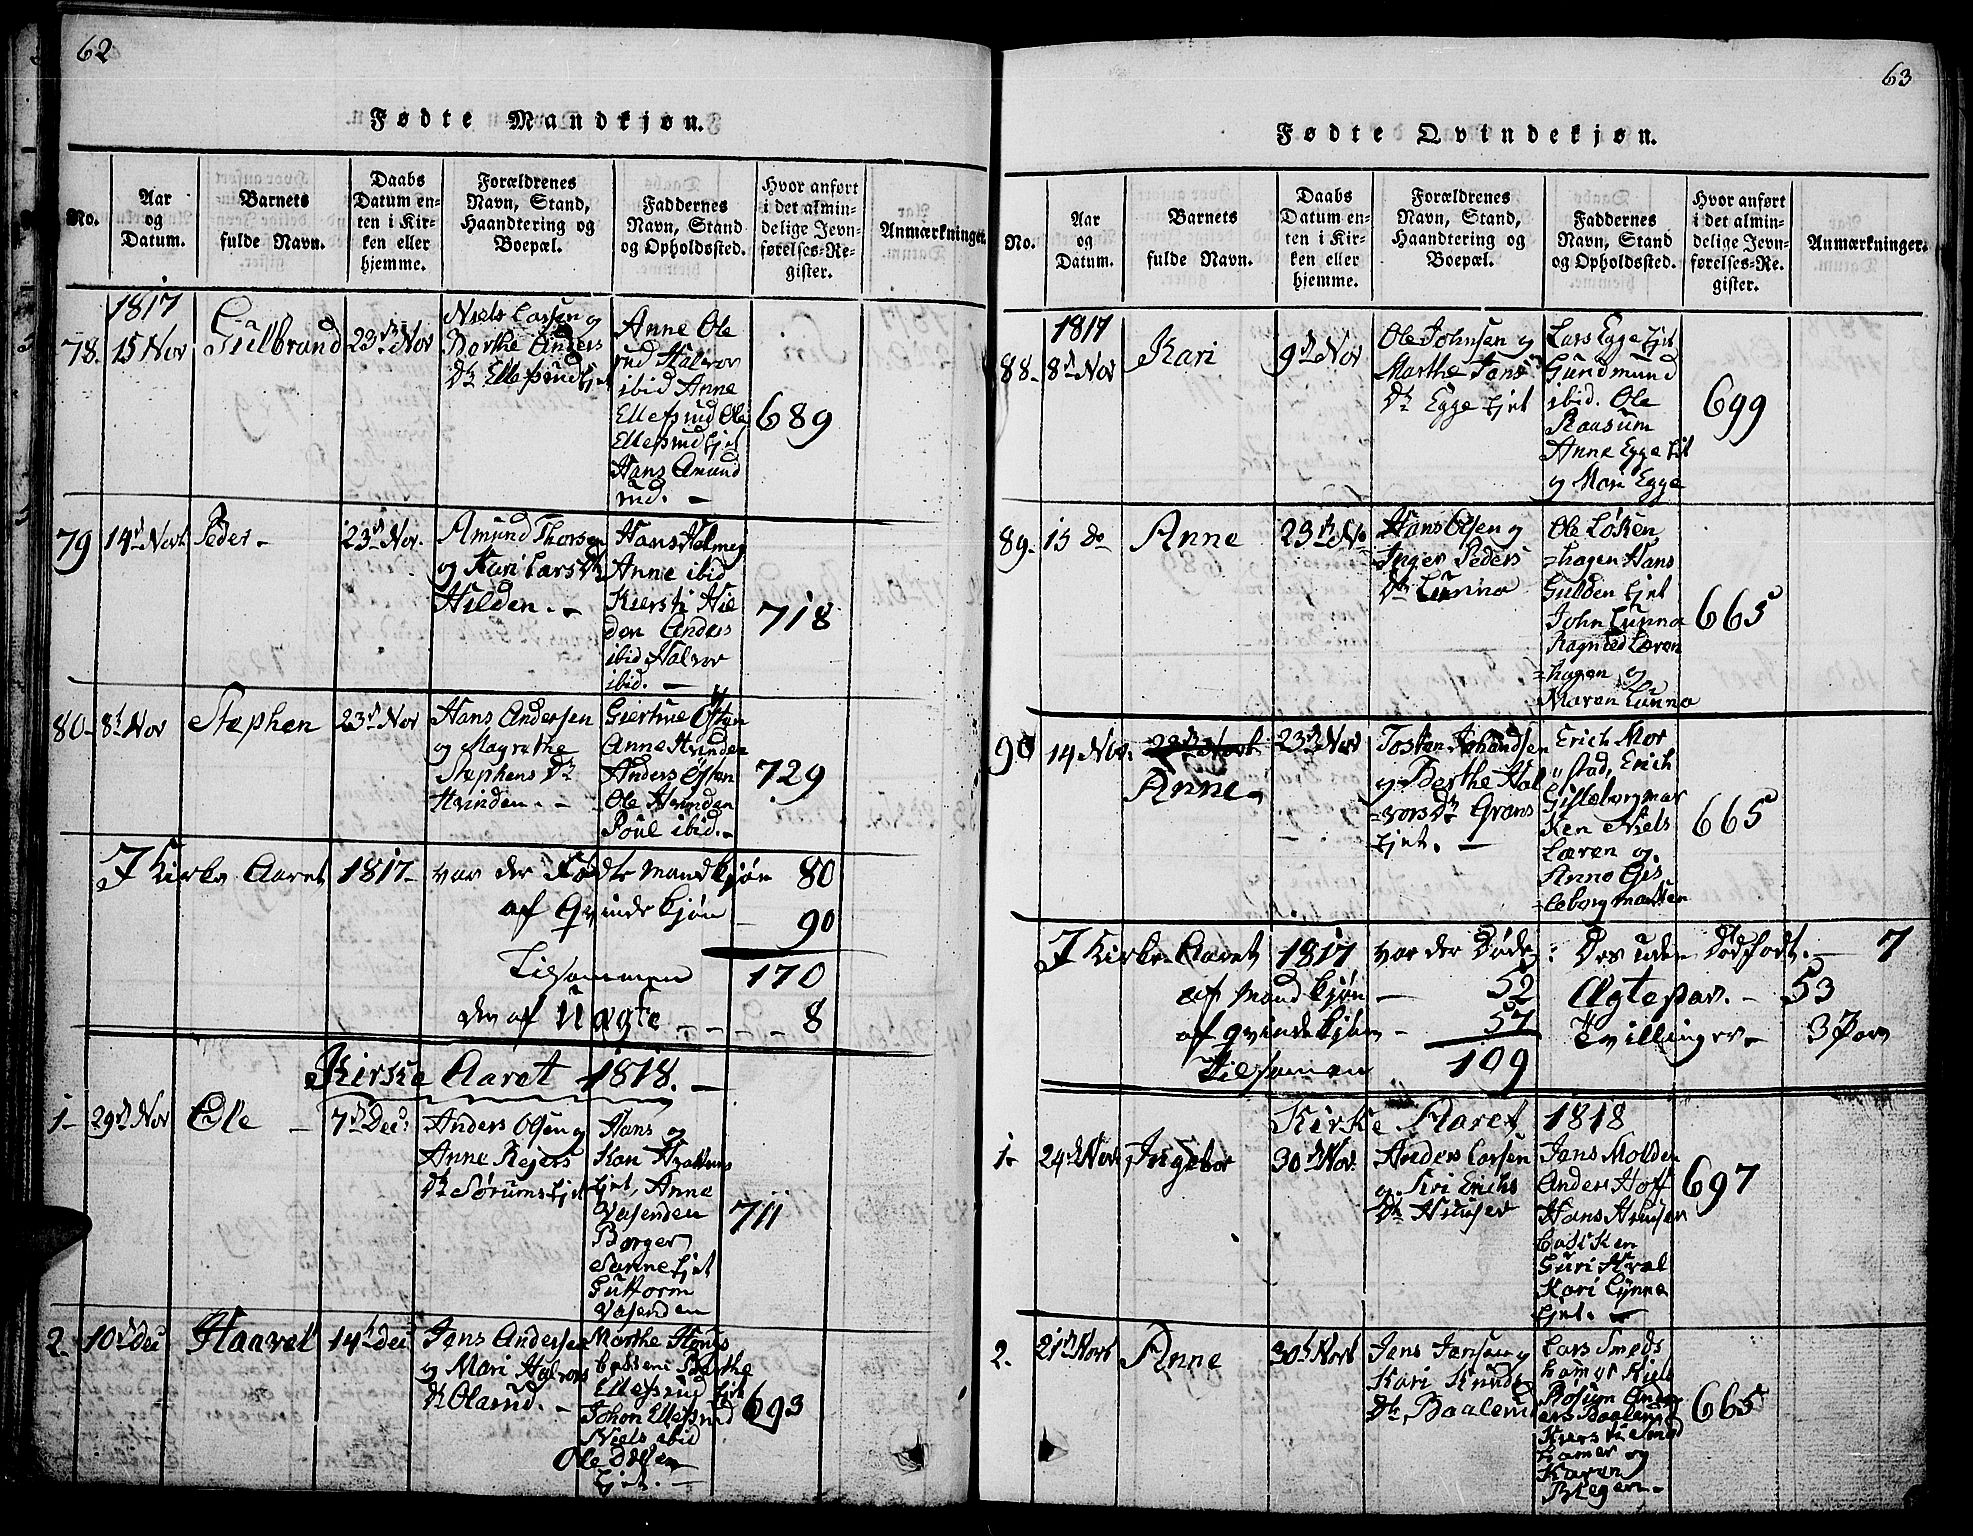 62
Fødte Mandkjøn.
No.
Aar
og
Datum.
Barnets
fulde Navn.
Daabs
Datum en-
ten i Kir-
ken eller
hjemme.
Forældrenes
Navn, Stand,
Haandtering og
Boepæl.
Faddernes
Navn, Stand
og Opholdssted.
Hvor anført
i det almin-
delige Jevn-
førelses-Re-
gister.
Anmærkninger.
1817
78. 15 Nov
Gulbrand
23de Nov
Niels Larsen og
Berthe Anders
Dr. Ellefsrud Ejet
Anne Ole
rud Halvor
ibid Anne
Ellefsrud Ole
Ellefsrud Ejet
Hans Amund
rud. –
689
79 14de Novb
Peder –
23de Nov.
Amund Thorsen
og Kari Lars Dr
Hilden. –
Hans Halmeg
Anne ibid
Kiersti Hil
den Anders
ibid Halvor
ibid. –
718
80 – 8de Nov
Stephen
23de Nov
Hans Andersen
og Magrethe
Stephens Dr
Hvinden. –
Giertrue Østen
Anne Hvinden
Anders Østen
Ole Hvinden
Poul ibid. –
729
I Kirke Aaret 1817 – var der Fødte Mandkjøn 80
af Qvindekjøn – 90
Tilsammen 170
der af Uægte – – – 8
Kirke Aaret 1818. –
1 – 29de Nov
Ole –
7de Dec:
Anders Olsen og
Anne Rejers
Dr Sørums Ejet
Hans og
Kari
Ejet, Anne
Vasenden
Børger
Sanne Ejet
Guttorm
Vasenden
711
2 – 10de Dec
Haavel
14de Dec
Jens Andersen
og Mari Halvors
Dr Olarud. –
Marthe
Berthe
Ellefsrud Ejet
Johan Ellefsrud
Niels ibid
Ole
Ejet. –
693
63
Fødte Qvindekjøn.
No.
Aar
og
Datum.
Barnets
fulde Navn.
Daabs
Datum en-
ten i Kir-
ken eller
hjemme.
Forældrenes
Navn, Stand,
Haandtering og
Boepæl.
Faddernes
Navn, Stand
og Opholdssted.
Hvor anført
i det almin-
delige Jevn-
førelses-Re-
gister.
Anmærkninger.
1817
88 – 8de Nov
Kari
9de Nov
Ole Johnsen og
Marthe Jens
Dr Egge Ejet
Lars Egge Ejet
Gundmund
ibid. Ole
Raasum
Anne Egge Ejet
og Mari Egge
699
89 – 15 do
Anne
23de No
Hans Olsen og
Inger Peders
Dr Lunna
Ole Løken
=hagen Hans
Gulden Ejet
John Lunna
Ragnild Løren
=hagen og
Maren Lunna
665
90 14 Nov.
Anne –
23de Nov
Tosten
og Berthe Hal
=vors Dr Grans
Ejet. –
Erich Mor
=stad, Erich
Gisleborgmar
ken Niels
Løren og
Anne Gis
=leborgmarken
665
I Kirke Aaret 1817 var der Døde: Des uden Dødfødt. – 7
af Mandkjøn – 52 Ægtepar. – 53
af Qvindekjøn – 57 Tvillinger – 3 Par
Tilsamen 109
Kirke Aaret 1818
1 – 24de Nov.
Ingebor
30de Nov.
Anders Larsen
og Siri Erichs
Dr Huuser
Jens Molden
Anders Hoff
Hans Huuser
Guri
Kari Lynne
Ejet. –
697
2. 21de Novb
Anne
30te Novb
Jens Jensen og
Kari Knuds
Dr. Baalerud
Lars Smeds
hamer Niels
Røsum Anders
Baalerud
Kiersti Smed
hamer og
Karen
Blegen –
665